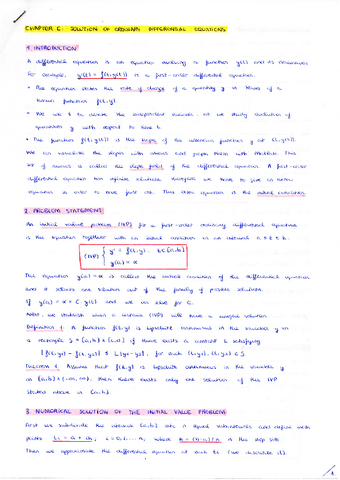 CHAPTER 6: SOLUTION OF ORDINARY DIFFERENTIAL EQUATIONS
1. INTRODUCTION
A differential equation is an equation involving a function y(t) and its derivatives
For example, y'(t) = f(t, y(t)) is a first-order differential equation.
• The equation states the rate of change of a quantity y in terms of a
known function f(t,y)
• We use t to denote the independent variable, as we study evolution of
quantities y with respect to time t.
• The function f(t, y(t)) is the slope of the unknown function y at (t, y(t)).
We can visualize the slopes with arrows and graph them with Matlab. This
set of arrows is called the slope field of the differential equation. A first-order
differential equation has infinite solutions. Therefore we have to give an extra
equation in order to have just one. This extra equation is the initial condition.
2. PROBLEM STATEMENT
An initial value problem (IVP) for a first-order ordinary differential equation
is the equation together with an initial condition on an interval a ≤ t ≤ b.
(IVP) { y' = f(t,y) t ∈ [a,b]
y(a) = α
The equation y(a) = α is called the initial condition of the differential equation
and it selects one solution out of the family of possible solutions.
If y(a) = α = C · y(t) and we solve for C.
Now, we establish when a
IVP will have a unique solution
Definition 1. A function f(t,y) is Lipschitz continuous in the variable y on
a rectangle S = [a,b] × [c,d] if there exists a constant L satisfying
|f(t,y₁) - f(t,y₂)| ≤ L|y₁-y₂|, for each (t,y₁), (t,y₂) ∈ S
Theorem 1. Assume that f(t,y) is Lipschitz continuous in the variable y
on [a,b] × (-∞, ∞), then there exists only one solution of the IVP
stated above in [a,b].
3. NUMERICAL SOLUTION OF THE INITIAL VALUE PROBLEM
First we subdivide the interval [a,b] into n equal subintervals and define mesh
points tᵢ = a + ih, i = 0, 1, ... n, where h = (b-a)/n is the step size
Then we approximate the differential equation at each tᵢ (we discretize it).
1